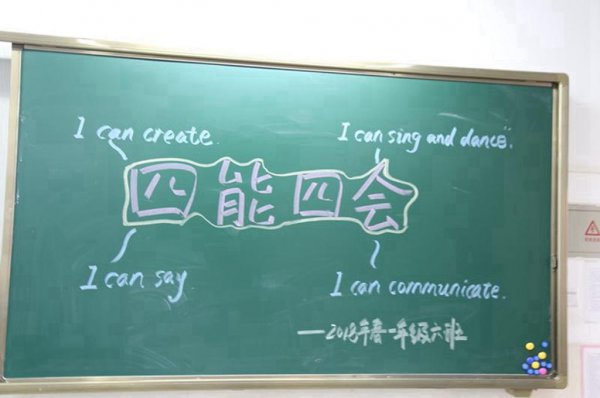 I can create.
I can sing and dance.
四能四会
I can say.
I can communicate.
——2018年春一年级六班